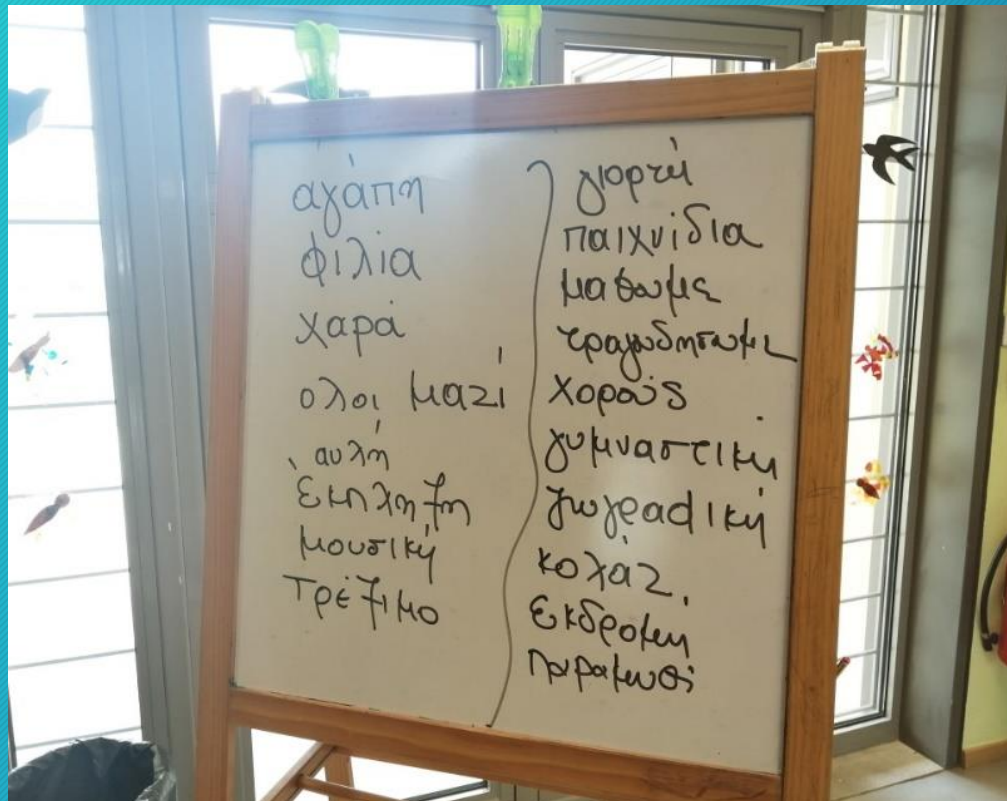 αγάπη
φιλία
χαρά
ολοι μαζί
αυλή
έκπληξη
μουσική
τρέξιμο
γιορτή
παιχνίδια
μαθωμε
τραγωδησωμε
χορούς
γυμναστική
ζωγραφική
κολάζ
εκδρομη
παραμυθι